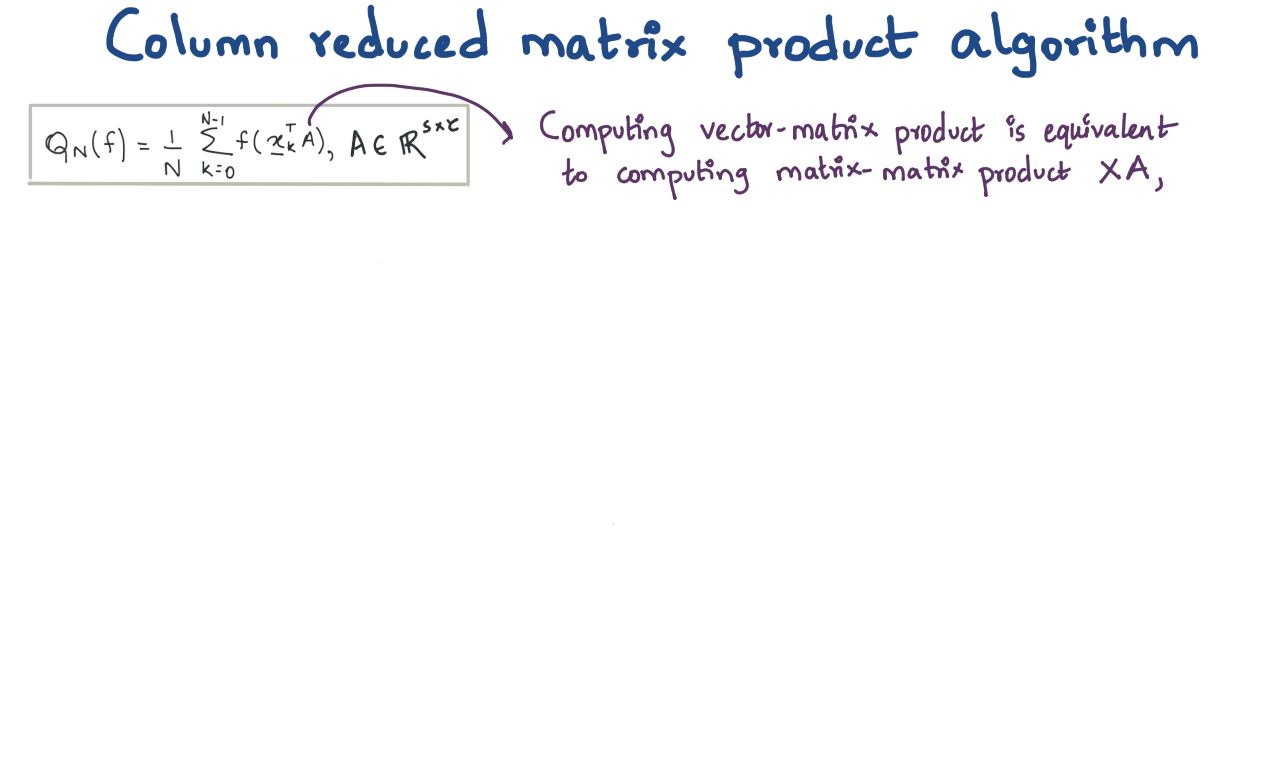 Column reduced matrix product algorithm
Q_N(f) = 1/N ∑_{k=0}^{N-1} f(x_k^T A), A ∈ ℝ^{s×τ}
Computing vector-matrix product is equivalent
to computing matrix-matrix product XA,